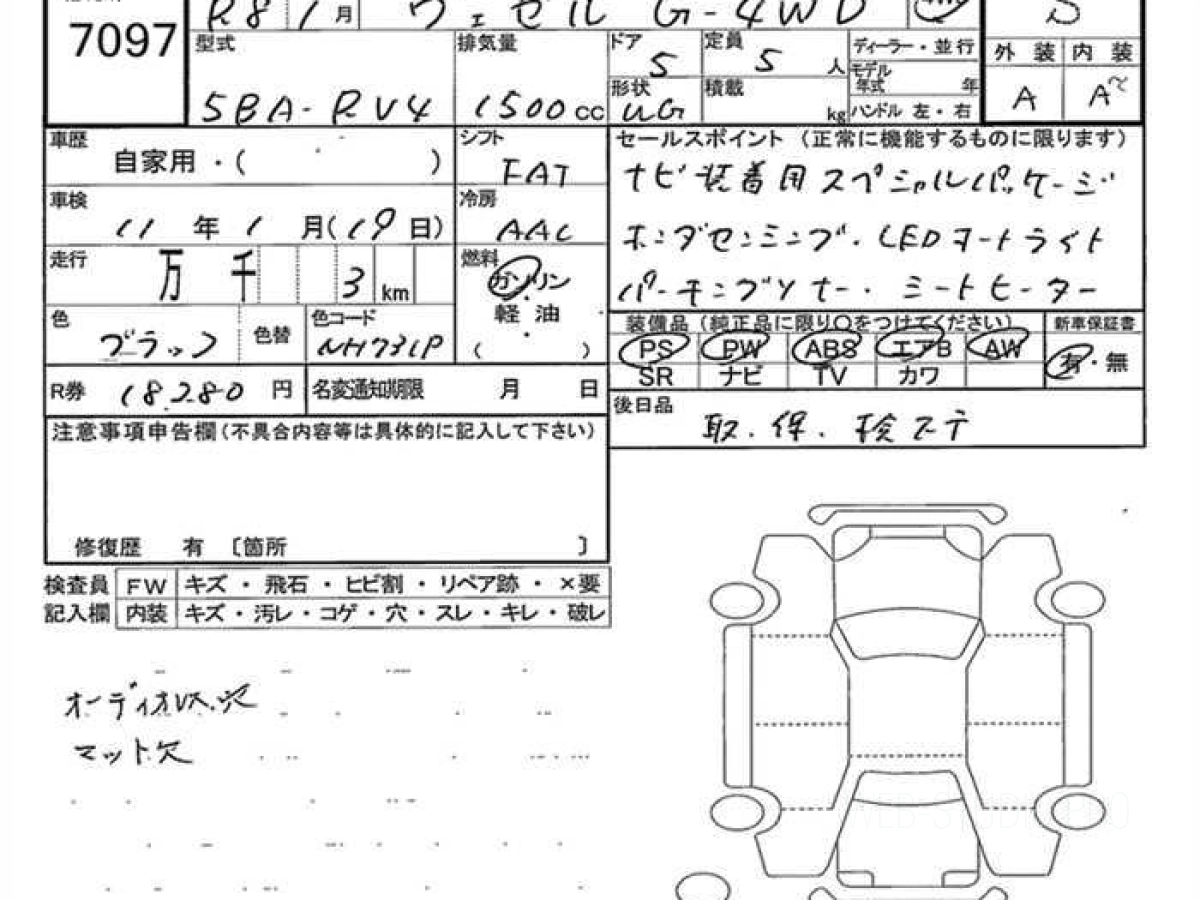 7097
R8 1月 ヴェゼル G-4WD
S
型式 5BA-RV4
排気量 1500cc
ドア 5
定員 5人
形状 UG
積載 kg
ディーラー・並行
モデル年式 年
ハンドル 左・右
外装 内装
A A~
車歴 自家用・( )
シフト FAT
車検 11年1月(19日)
冷房 AAC
走行 万 千 3km
燃料 ガソリン・軽油・( )
色 ブラック 色替
色コード NH731P
R券 18,280円
名変通知期限 月 日
セールスポイント(正常に機能するものに限ります)
ナビ装着用スペシャルパッケージ
ホンダセンシング・LEDオートライト
パーキングソナー・シートヒーター
装備品(純正品に限り○をつけてください)
新車保証書
PS PW ABS エアB AW
有・無
SR ナビ TV カワ
後日品 取.保.検ステ
注意事項申告欄(不具合内容等は具体的に記入して下さい)
修復歴 有〔箇所 〕
検査員 FW キズ・飛石・ヒビ割・リペア跡・×要
記入欄 内装 キズ・汚レ・コゲ・穴・スレ・キレ・破レ
オーディオレス.穴
マット欠